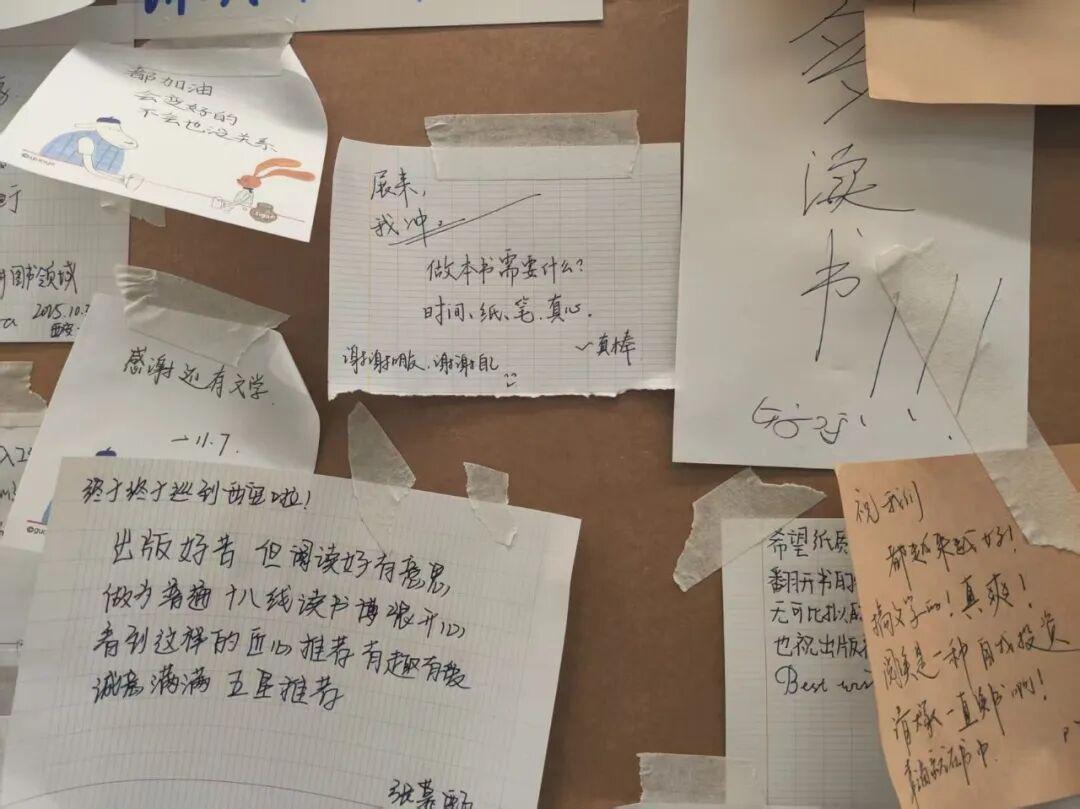 都加油
会变好的
不会也没关系
图书领域
2025.10.
西安
感谢还有文学
11.7.
展来,
我冲。
做本书需要什么?
时间、纸、笔、真心。
~真棒
谢谢朋友、谢谢自己
多
读
书
终于终于巡到西安啦!
出版好苦 但阅读好有意思,
做为普通十八线读书博很开心,
看到这样的匠心推荐 有趣有爱
诚意满满 五星推荐
希望纸质
翻开书的
无可比拟的
也祝出版
Best
祝我们
都越来越好!
搞文学的!真爽!
阅读是一种自我投资
一直读书啊!
书中.